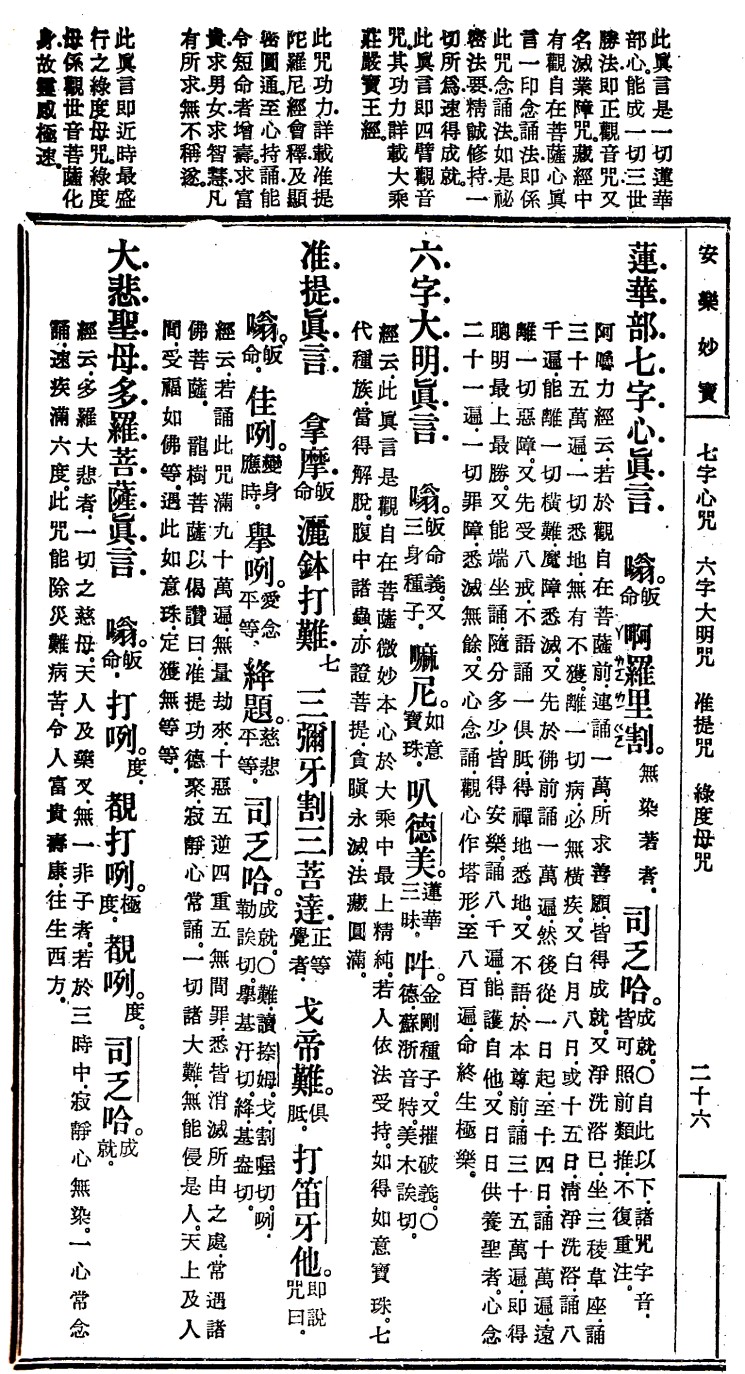 安樂妙寶
七字心咒 六字大明咒 准提咒 綠度母咒
二十六
此眞言是一切蓮華
部心能成一切三世
勝法即正觀音咒又
名滅業障咒藏經中
有觀自在菩薩心眞
言一印念誦法即係
此咒念誦法如是祕
密法要精誠修持一
切所爲速得成就。
此眞言即四臂觀音
咒其功力詳載大乘
莊嚴寶王經。
此咒功力詳載准提
陀羅尼經會釋及顯
密圓通至心持誦能
令短命者增壽求富
貴求男女求智慧凡
有所求無不稱遂。
此眞言即近時最盛
行之綠度母咒綠度
母係觀世音菩薩化
身故靈感極速。
蓮華部七字心眞言 嗡。皈命。啊羅里割。無染著者。司乏哈。成就。〇自此以下諸咒字音皆可照前類推不復重注。
阿嚕力經云若於觀自在菩薩前連誦一萬所求善願皆得成就又淨洗浴已坐三稜草座誦
三十五萬遍一切悉地無有不獲離一切病必無橫疾又白月八日或十五日淸淨洗浴誦八
千遍能離一切橫難魔障悉滅又先於佛前誦一萬遍然後從一日起至十四日誦十萬遍遠
離一切惡障又先受八戒不語誦一俱胝得禪地悉地又不語於本尊前誦三十五萬遍即得
聰明最上最勝又能端坐誦隨分多少皆得安樂誦八千遍能護自他又日日供養聖者心念
二十一遍一切罪障悉滅無餘又心念誦觀心作塔形至八百遍命終生極樂。
六字大明眞言 嗡。皈命義又三身種子。嘛尼。如意寶珠。叭德美。蓮華三昧。吽。金剛種子又摧破義。〇德蘇浙音特美木誒切。
經云此眞言是觀自在菩薩微妙本心於大乘中最上精純若人依法受持如得如意寶珠七
代種族當得解脫腹中諸蟲亦證菩提貪瞋永滅法藏圓滿。
准提眞言 拿摩皈命 灑鉢打難七 三彌牙割三菩達正等覺者。戈帝難。俱胝。打笛牙他。即說咒曰。
嗡。皈命。佳咧。變身應時。舉咧。愛念平等。絳題。慈悲平等。司乏哈。成就。〇難讀捺姆戈割喔切咧勒誒切舉基汙切絳基盎切。
經云若誦此咒滿九十萬遍無量劫來十惡五逆四重五無間罪悉皆消滅所由之處常遇諸
佛菩薩。龍樹菩薩以偈讚曰准提功德聚寂靜心常誦一切諸大難無能侵是人天上及人
間受福如佛等遇此如意珠定獲無等等。
大悲聖母多羅菩薩眞言 嗡。皈命。打咧。度。覩打咧。極度。覩咧。度。司乏哈。成就。
經云多羅大悲者一切之慈母天人及藥叉無一非子者若於三時中寂靜心無染一心常念
誦速疾滿六度此咒能除災難病苦令人富貴壽康往生西方。